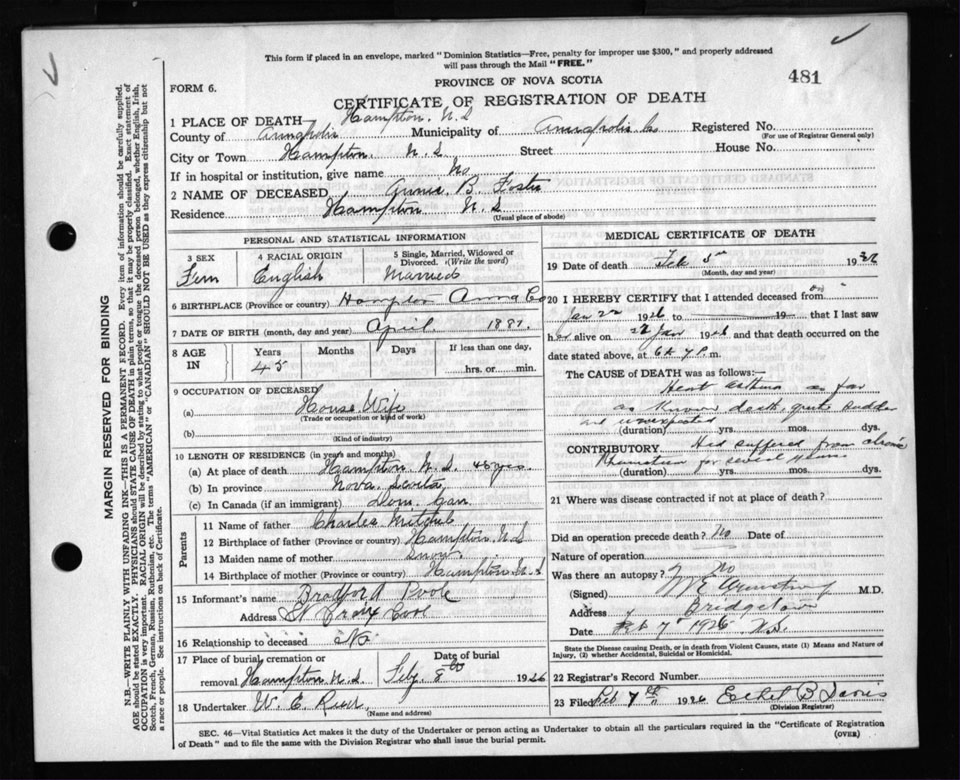 This form if placed in an envelope, marked "Dominion Statistics—Free, penalty for improper use $300," and properly addressed
will pass through the Mail "FREE."
PROVINCE OF NOVA SCOTIA
481
FORM 6.
CERTIFICATE OF REGISTRATION OF DEATH
1 PLACE OF DEATH Hampton. N.S
County of Annapolis Municipality of Annapolis Co Registered No.
(For use of Registrar General only)
City or Town Hampton. N.S Street House No.
If in hospital or institution, give name No
2 NAME OF DECEASED Annie B. Foster
Residence Hampton N.S
(Usual place of abode)
PERSONAL AND STATISTICAL INFORMATION
3 SEX 4 RACIAL ORIGIN 5 Single, Married, Widowed or Divorced. (Write the word)
Fem English Married
6 BIRTHPLACE (Province or country) Hampton Anna Co
7 DATE OF BIRTH (month, day and year) April 1881.
8 AGE IN Years Months Days If less than one day,
45 hrs. or min.
9 OCCUPATION OF DECEASED
(a) House Wife
(Trade or occupation or kind of work)
(b)
(Kind of industry)
10 LENGTH OF RESIDENCE (in years and months)
(a) At place of death Hampton N.S. 45 yrs.
(b) In province Nova Scotia
(c) In Canada (if an immigrant) Dom. Can
Parents
11 Name of father Charles Mitchel
12 Birthplace of father (Province or country) Hampton N.S
13 Maiden name of mother Snow
14 Birthplace of mother (Province or country) Hampton N.S
15 Informant's name Bradford Poole
Address St Croix Cove
16 Relationship to deceased No
17 Place of burial, cremation or removal Date of burial
Hampton N.S. Feby. 8 1926
18 Undertaker W. E.
(Name and address)
MEDICAL CERTIFICATE OF DEATH
19 Date of death Feb 5th 19
(Month, day and year)
20 I HEREBY CERTIFY that I attended deceased from on
Jan 22 1926 to 19 that I last saw
her alive on 22 Jan 1926 and that death occurred on
date stated above, at P.m.
The CAUSE of DEATH was as follows:—
Heart asthma as far
as known death quite sudden
and unexpected
(duration) yrs. mos. dys.
CONTRIBUTORY Had suffered from chronic
Rheumatism for several years
(duration) yrs. mos. dys.
21 Where was disease contracted if not at place of death?
Did an operation precede death? No Date of
Nature of operation
Was there an autopsy? No
(Signed) Armstrong M.D.
Address Bridgetown
Date Feb 7th 1926 N.S.
State the Disease causing Death, or in death from Violent Causes, state (1) Means and Nature of
Injury, (2) whether Accidental, Suicidal or Homicidal.
22 Registrar's Record Number
23 Filed Feb 7th 1926 Ethel B Davis
(Division Registrar)
SEC. 46—Vital Statistics Act makes it the duty of the Undertaker or person acting as Undertaker to obtain all the particulars required in the "Certificate of Registration
of Death" and to file the same with the Division Registrar who shall issue the burial permit.
(OVER)
MARGIN RESERVED FOR BINDING
N.B.—WRITE PLAINLY WITH UNFADING INK—THIS IS A PERMANENT RECORD. Every item of information should be carefully supplied.
AGE should be stated EXACTLY. PHYSICIANS should STATE CAUSE OF DEATH in plain terms, so that it may be properly classified. Exact statement of
OCCUPATION is very important. RACIAL ORIGIN will be described by stating to what people or tongue, the deceased person belonged, whether English, Irish,
Scotch, French, German, Russian, Ruthenian, etc. The terms "AMERICAN" or "CANADIAN" SHOULD NOT BE USED as they express citizenship but not
a race or people. See instructions on back of Certificate.